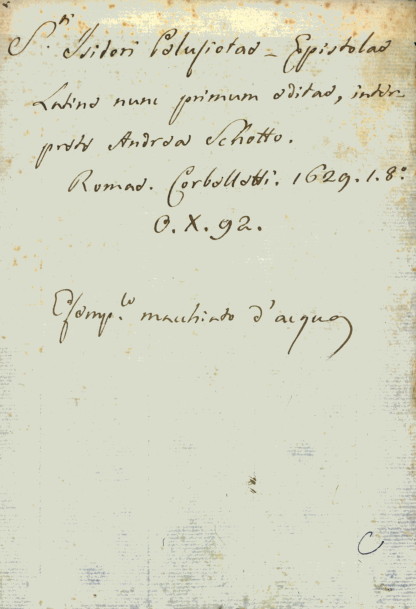 S.ti Isidori Pelusiotae - Epistolae
Latine nunc primum editae, inter-
prete Andrea Schotto.
Romae. Corbelletti. 1629. 1. 8.º
O. X. 92.
Esemp.lo macchiato d'acqua
C